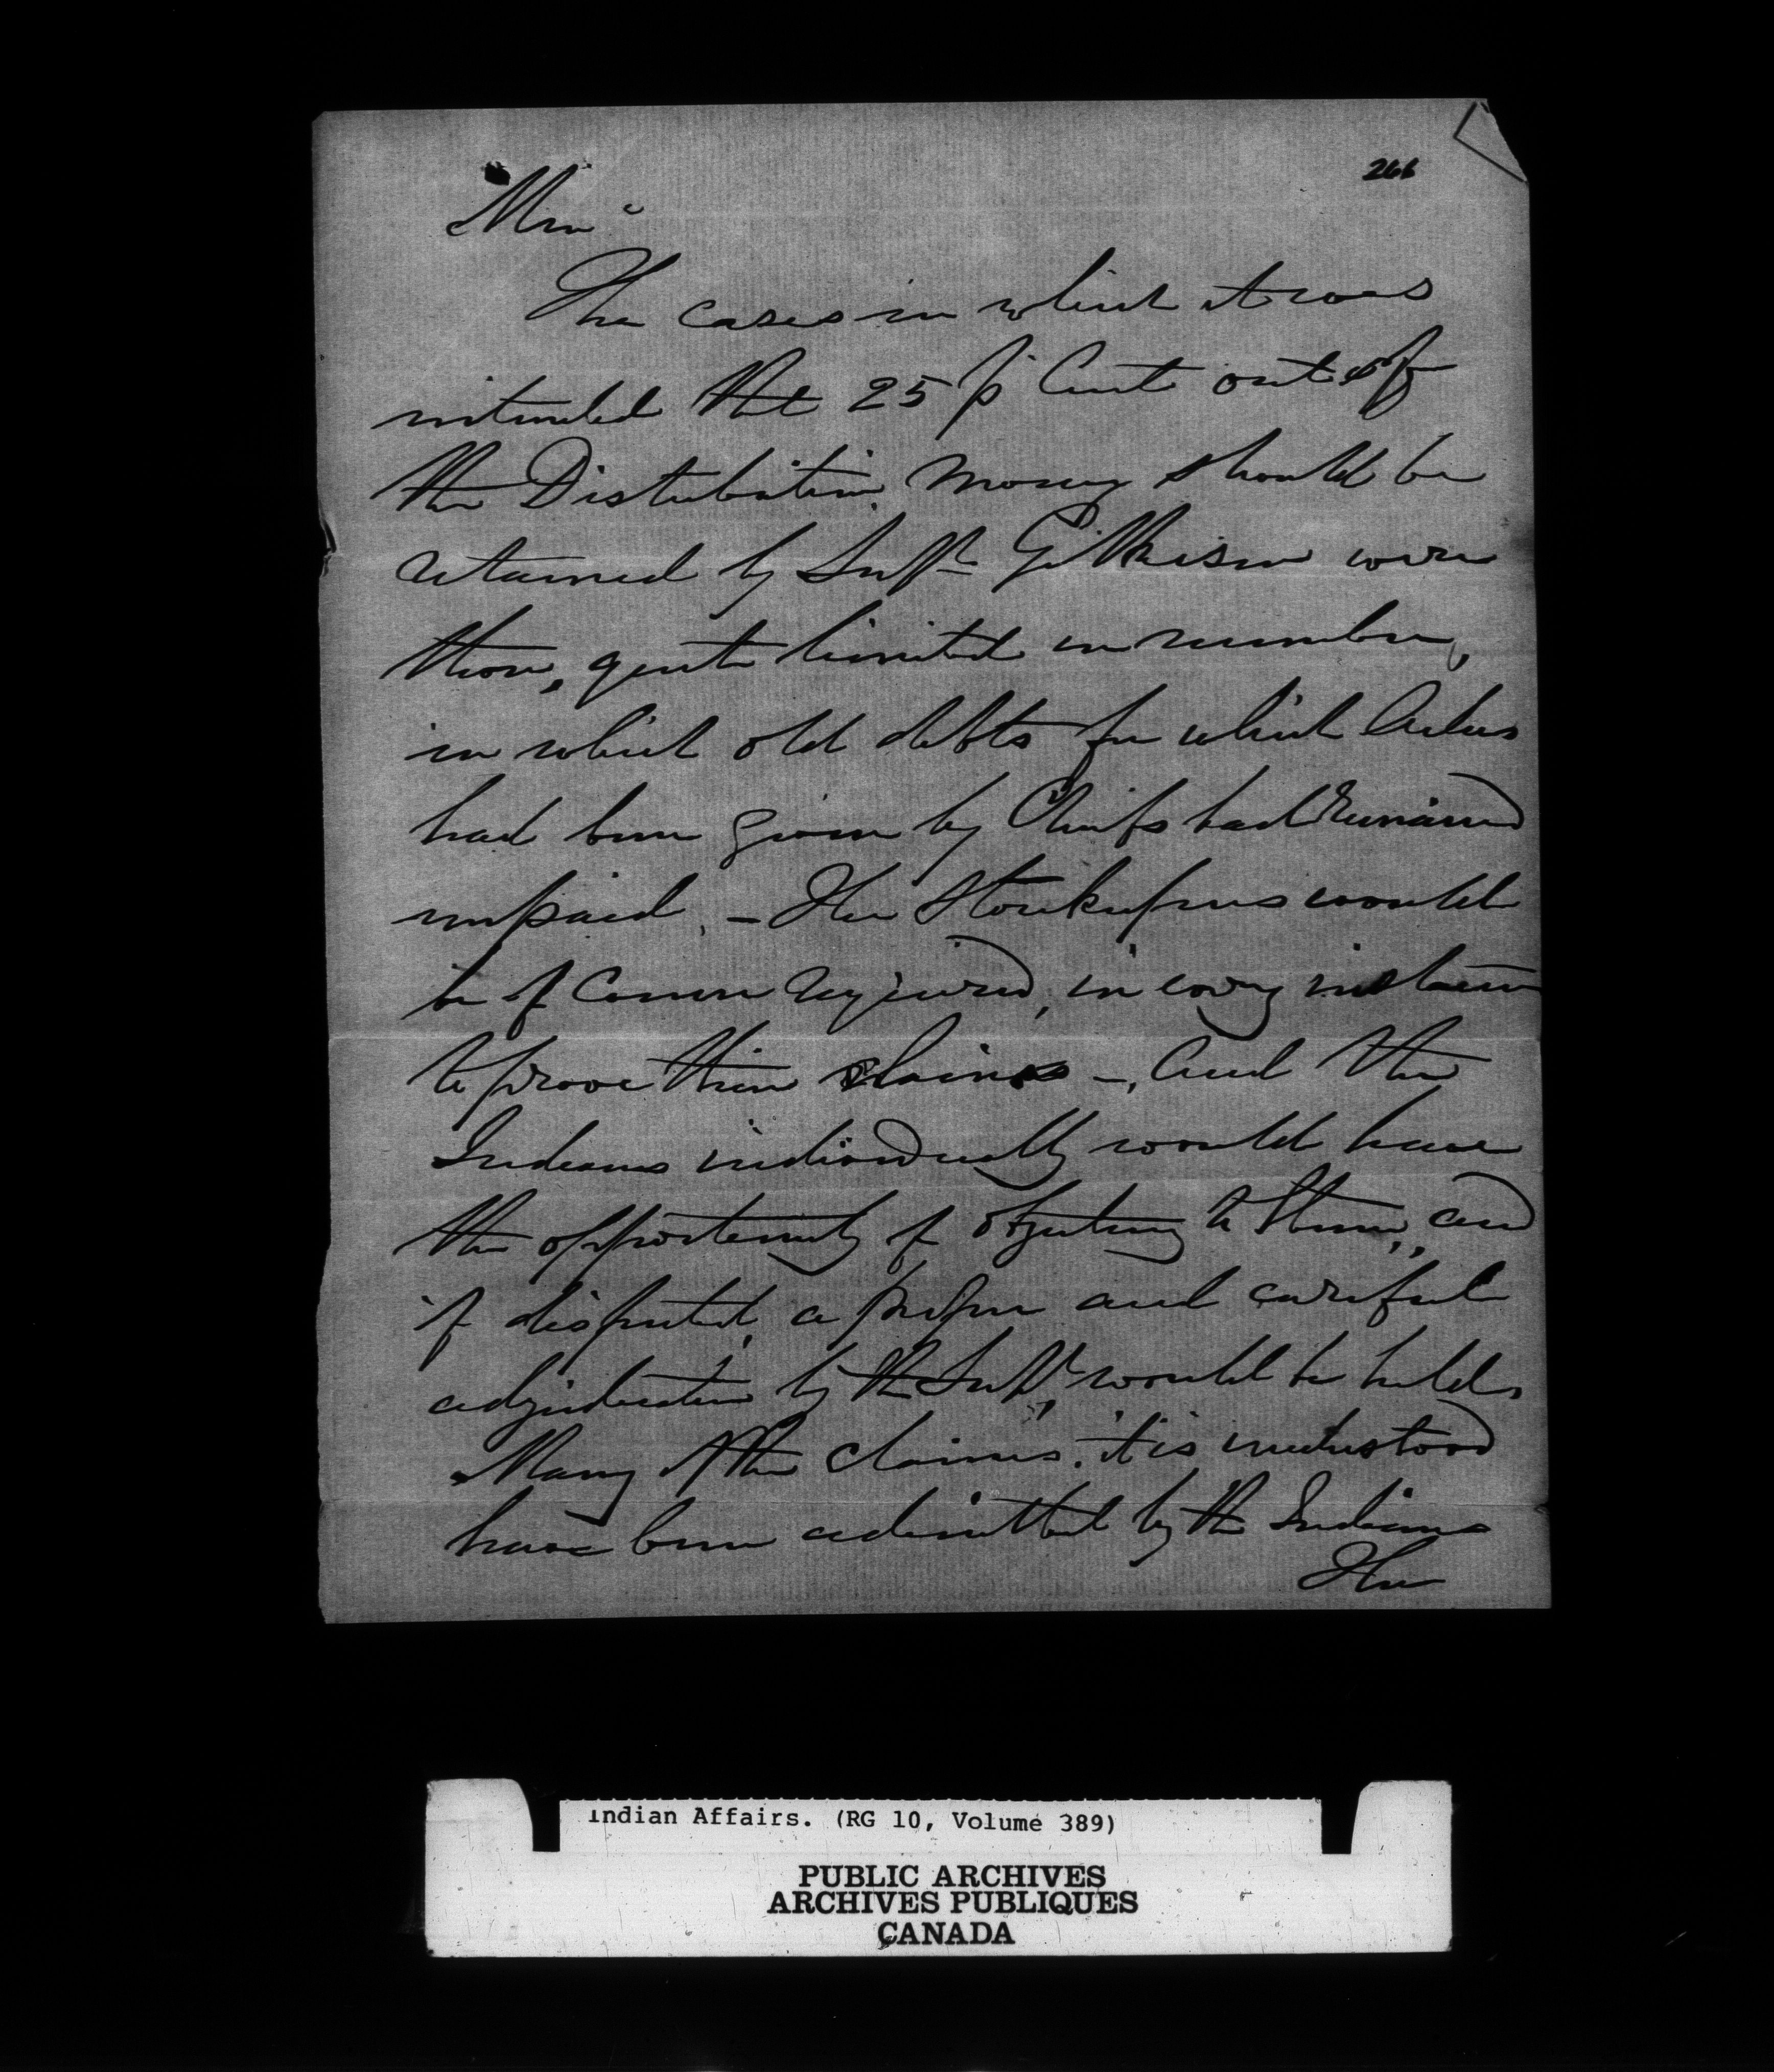 266
Mem
The cases in which it was
intended that 25 p Cent out of
the Distribution money should be
retained by Supt Gilkison were
those, quite limited in number,
in which old debts for which Orders
had been given by Chiefs had remained
unpaid. – The Storekeepers would
be of course required, in every instance
to prove their claims –, and the
Indians individually would have
the opportunity of objecting to them, and
if disputed, a proper and careful
adjudication by the Supt, would be held.
Many of the claims, it is understood
have been admitted by the Indians
The
Indian Affairs. (RG 10, Volume 389)
PUBLIC ARCHIVES
ARCHIVES PUBLIQUES
CANADA